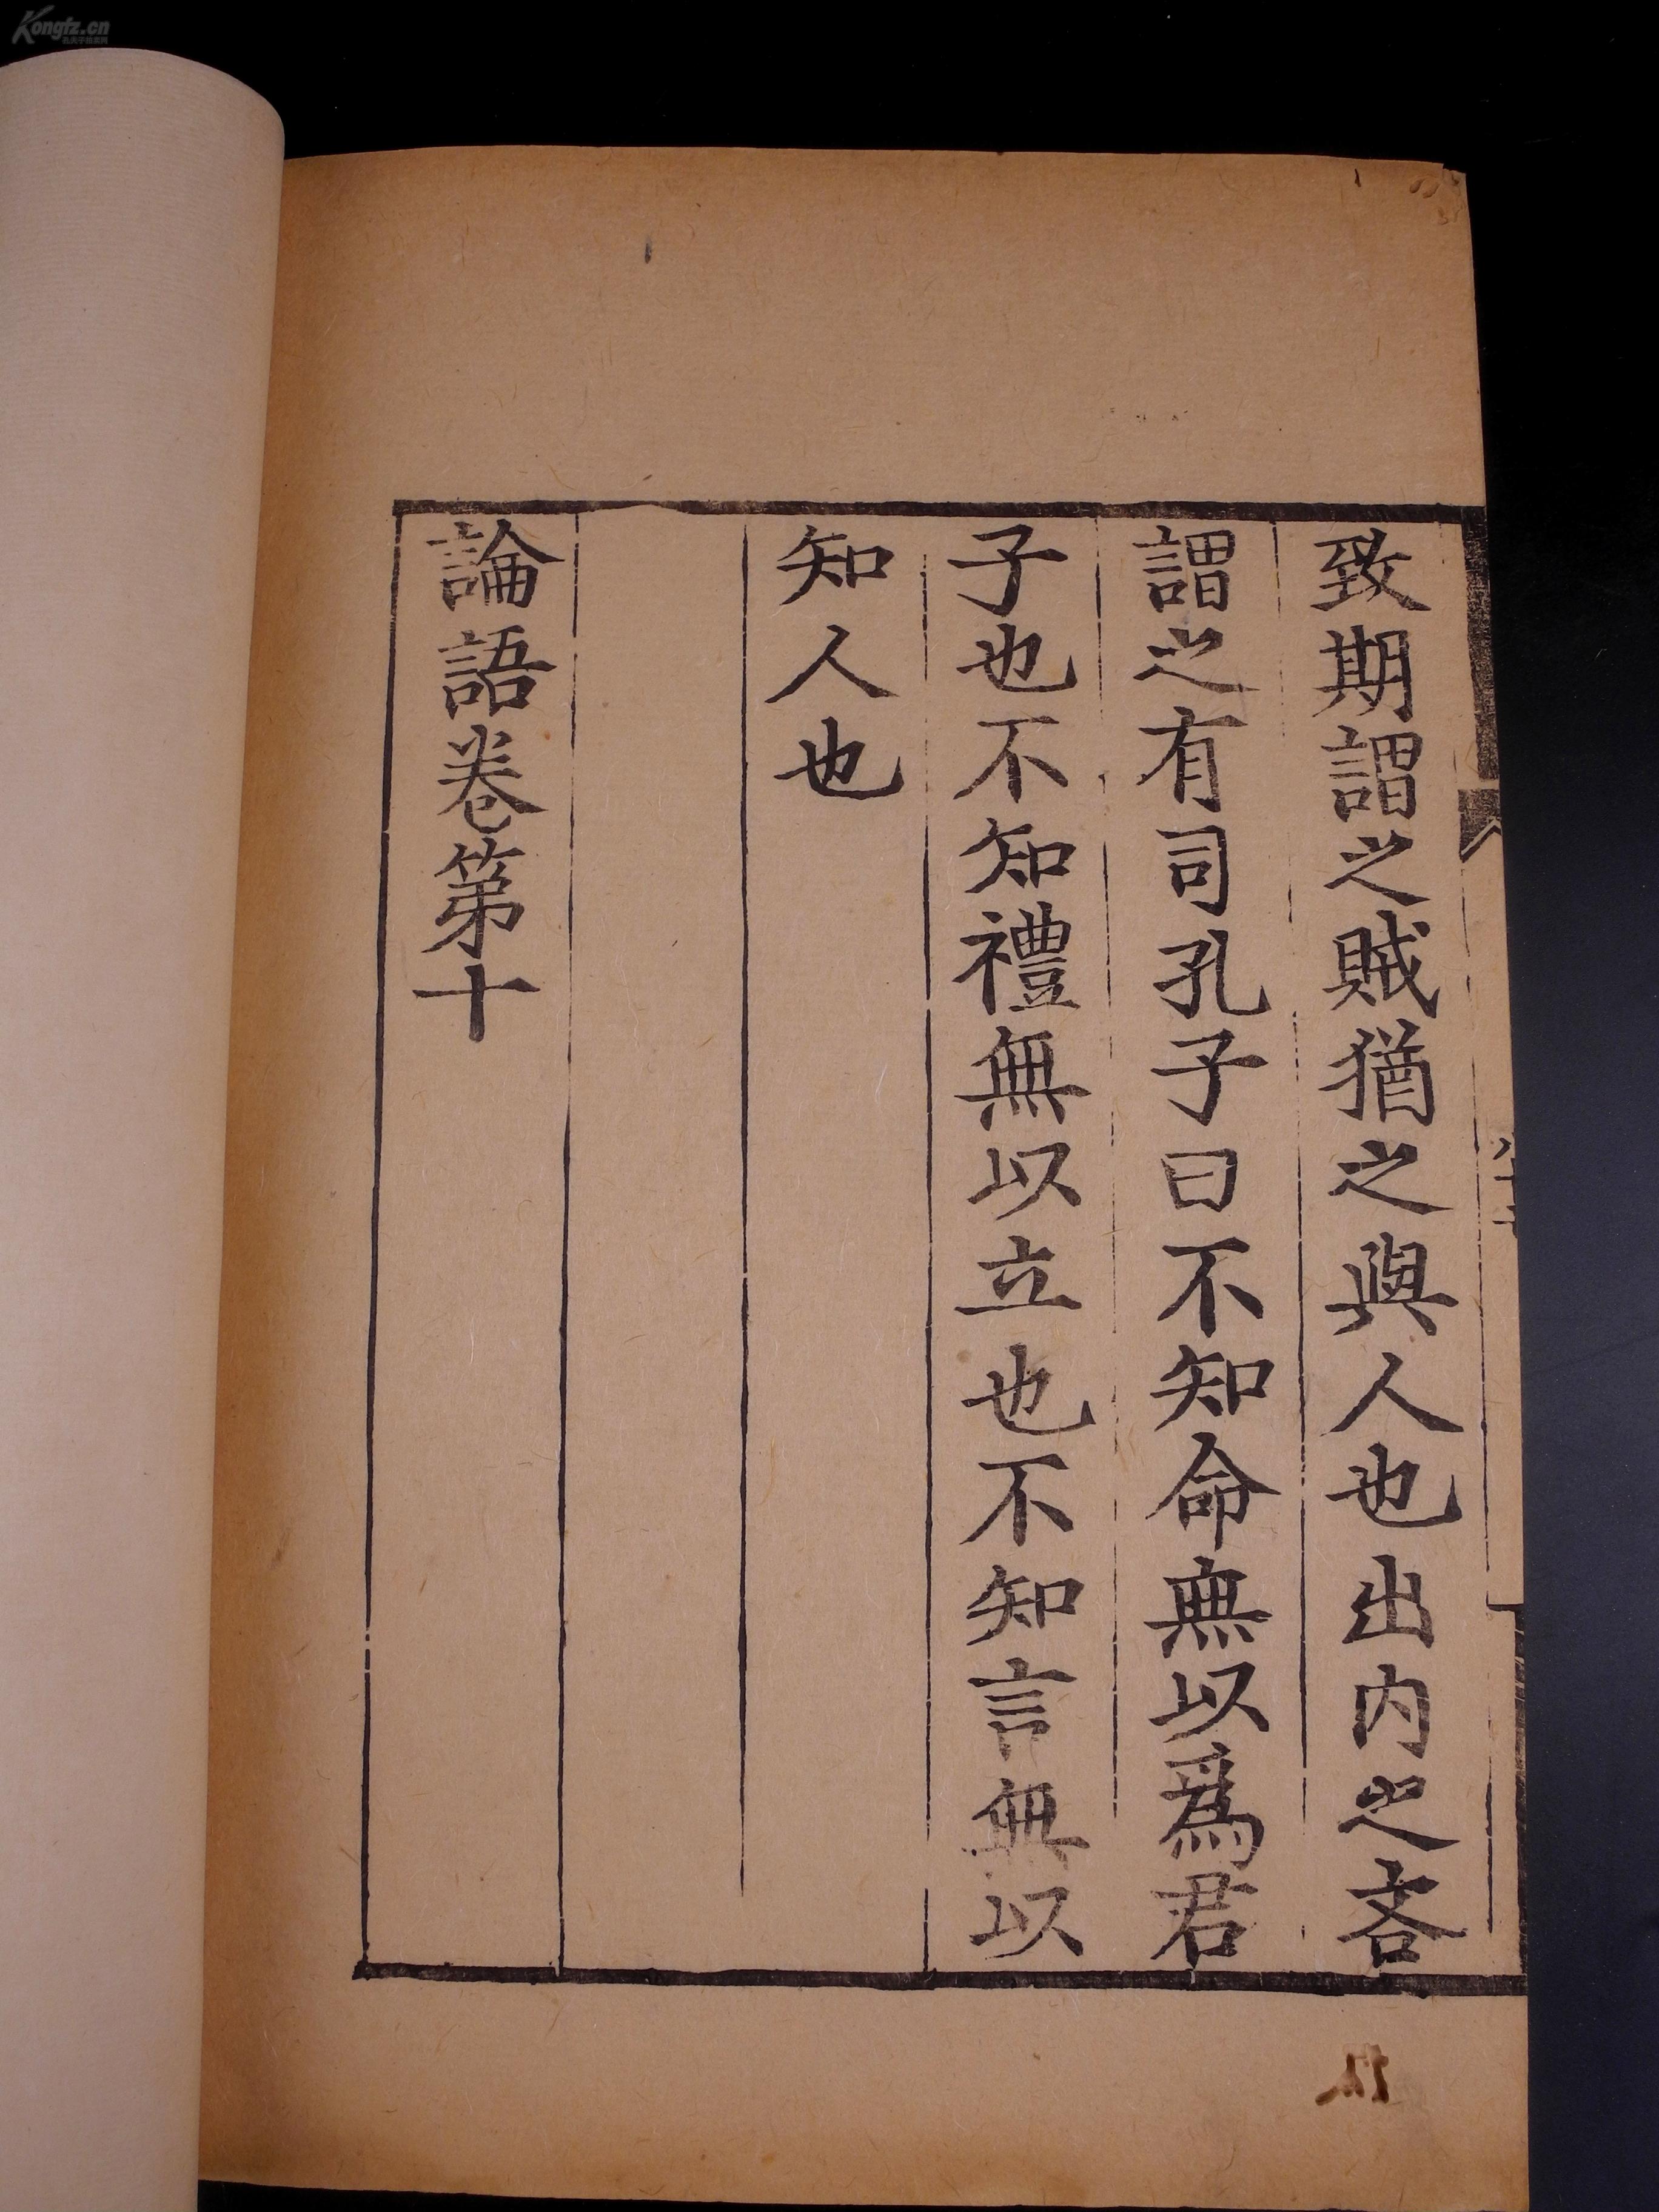 致期謂之賊猶之與人也出内之吝
謂之有司孔子曰不知命無以爲君
子也不知禮無以立也不知言無以
知人也
論語卷第十
Kongfz.cn